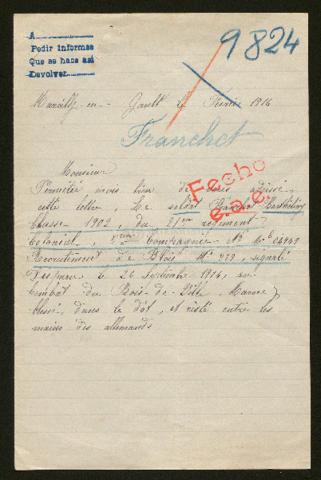 A
Pedir informes
Que se hace así
Devolver.
9824
Marcilly-en-Gault le Février 1916
Franchet
Monsieur
Permettez moi de adressé
cette lettre, Le soldat Barthélémy
Classe 1902, du 21ème régiment
Colonial, Compagnie
Recrutement de Blois N° 979, signalé
Disparu le 26 Septembre 1914, au
Combat du Bois-de-Ville, Marne
blessé dans le dos, et resté entre les
mains des allemands
Fecho
e.a.c.